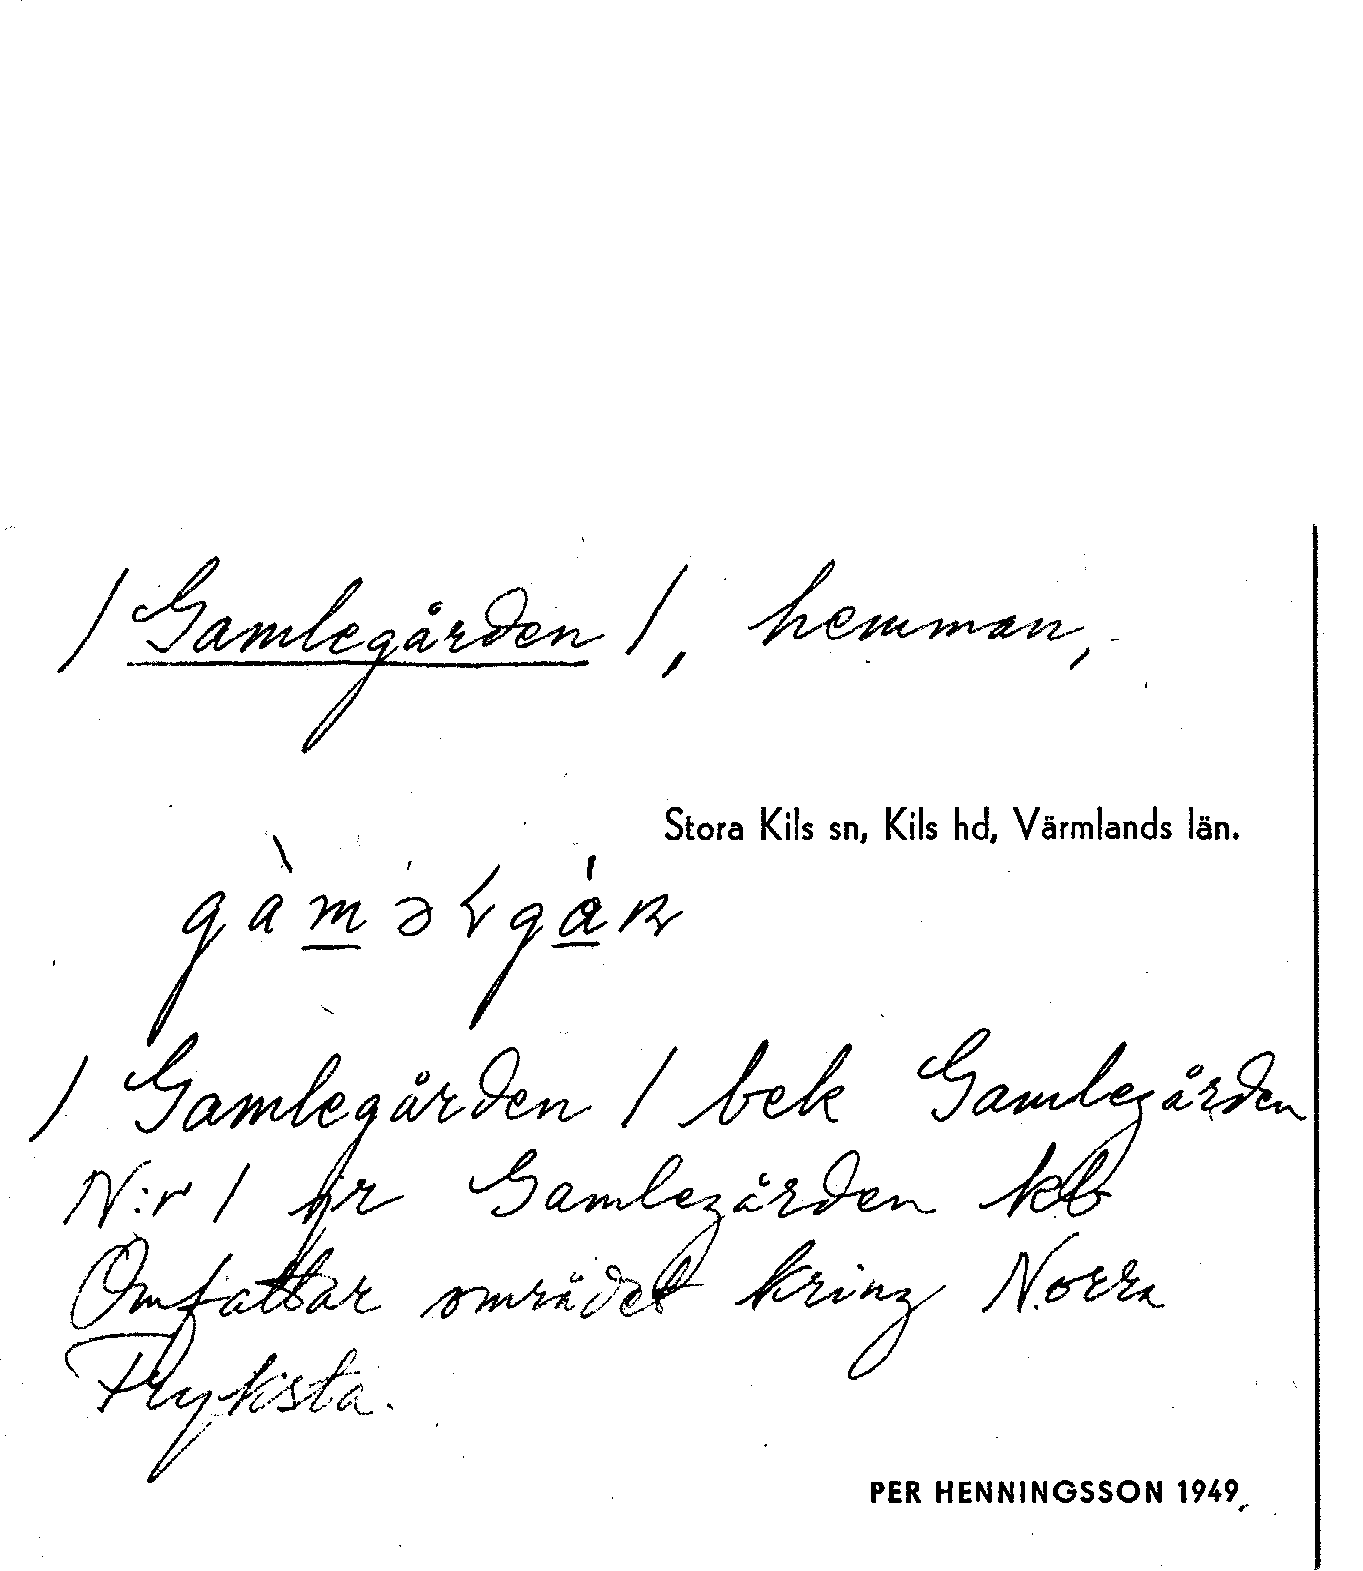 / Gamlegården /, hemman,
Stora Kils sn, Kils hd, Värmlands län.
/ Gamlegården / bek Gamlegården
N:r 1 jr Gamlegården kb
Omfattar området kring Norra
Fryksta.
PER HENNINGSSON 1949.